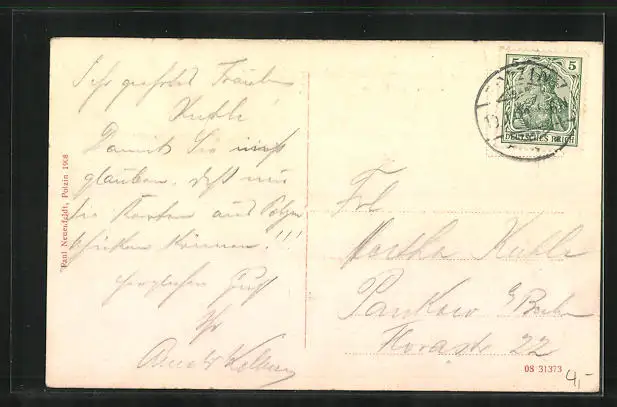 Sehr geehrtes Fräulein
Kuhle
Damit Sie nicht
glauben, daß nur
die Karten aus Polzin
schicken können!!!
herzlichen Gruß
Ihr
Paul Neuenfeldt, Polzin 1908
5 5
DEUTSCHES REICH
Frl
Martha Kuhle
Pankow b/Berlin
Florastr 22
OS 31373
4,-